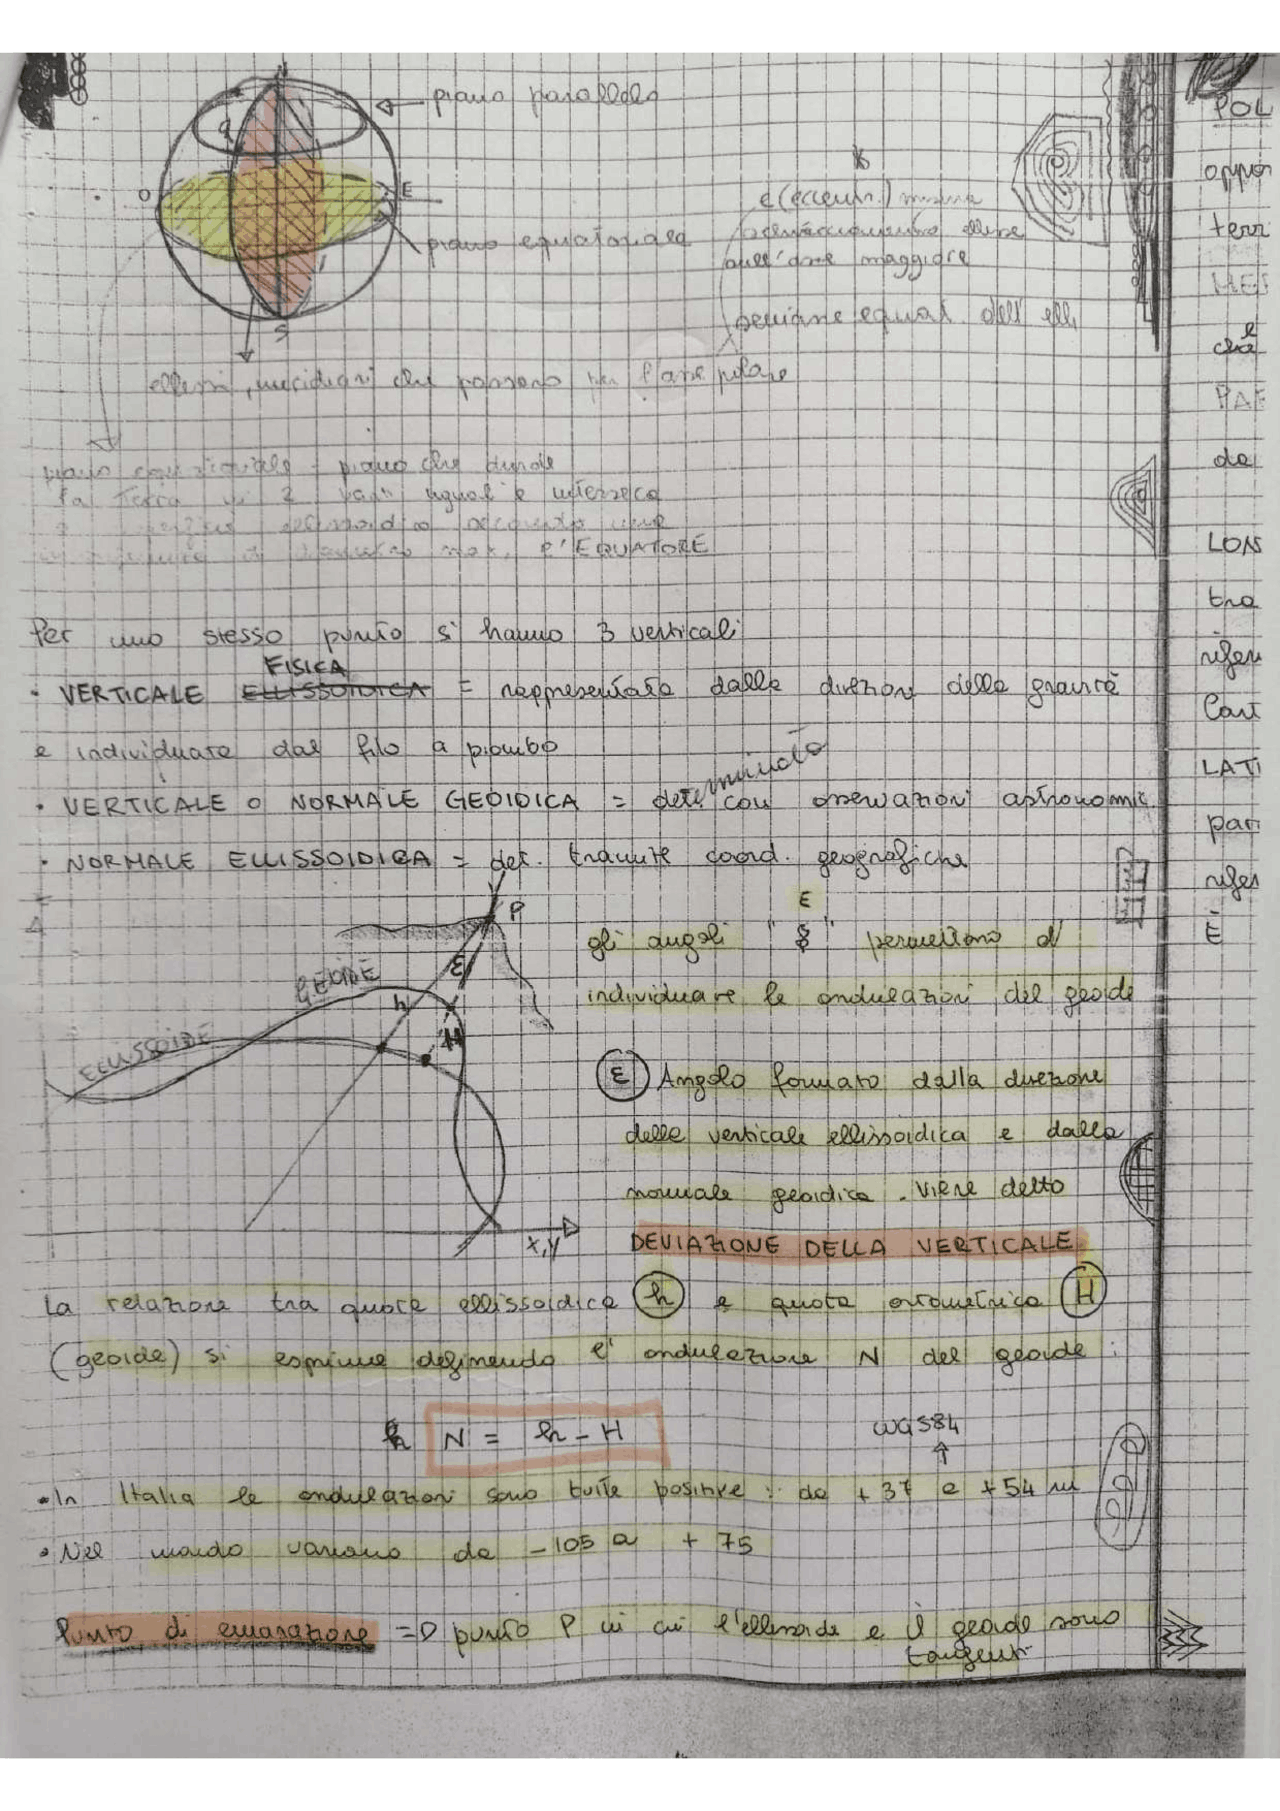 N
piano parallelo
φ
O
E
piano equatoriale
e (eccentr.) misura
ellisse
sull'asse maggiore
sezione equat. dell'elli
S
ellissi, meridiani che passano per l'asse polare
piano equatoriale = piano che divide
la Terra in 2 parti uguali e interseca
ellissoidica secondo una
max, l'EQUATORE
Per uno stesso punto si hanno 3 verticali
FISICA
• VERTICALE ELLISSOIDICA = rappresentata dalla direzioni della gravità
e individuata dal filo a piombo
• VERTICALE O NORMALE GEOIDICA = determinata con osservazioni astronomic.
• NORMALE ELLISSOIDICA = det. tramite coord. geografiche
P
ε
GEOIDE
h
H
ELLISSOIDE
x,y
ε
gli angoli " " permettono di
individuare le ondulazioni del geoide
ε Angolo formato dalla direzione
della verticale ellissoidica e dalla
normale geoidica. Viene detto
DEVIAZIONE DELLA VERTICALE
La relazione tra quota ellissoidica h e quota ortometrica H
(geoide) si esprime definendo l'ondulazione N del geoide:
N = h - H
WGS84
↑
• In Italia le ondulazioni sono tutte positive: da +37 a +54 m
• Nel mondo variano da -105 a +75
Punto di emanazione => punto P in cui l'ellissoide e il geoide sono
tangenti
POL
oppor
terr
MER
e
cha
PAR
da
LON
tra
rifer
Cart
LATI
par
rifer
È